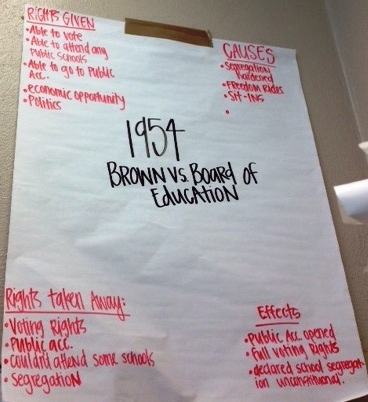 RIGHTS GIVEN
• Able to vote
• Able to attend any
Public Schools
• Able to go to Public
Acc.
• economic opportunity
• Politics
CAUSES
• Segregation
hardened
• Freedom Rides
• Sit-INS
•
1954
BROWN VS. BOARD OF
EDUCATION
Rights taken Away:
• Voting Rights
• Public acc.
• couldn't attend some schools
• Segregation
Effects
• Public Acc. opened
• Full voting Rights
• declared school segregat-
ion unconstitutional.